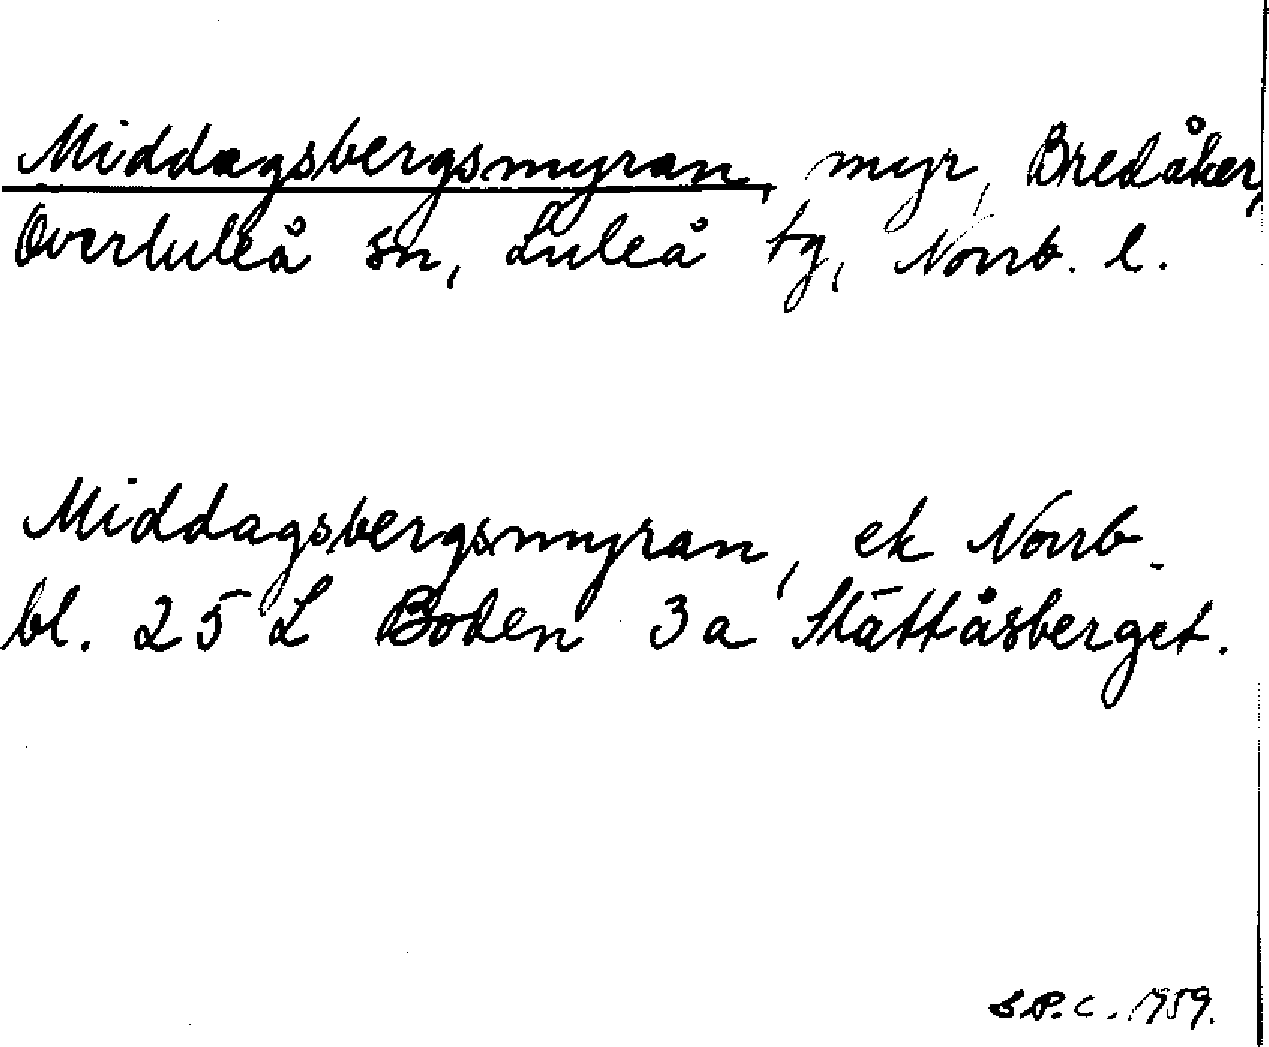 Middagsbergsmyran, myr, Bredåker,
Överluleå sn, Luleå tg, Norrb. l.
Middagsbergsmyran, ek Norrb.
bl. 25 L Boden 3a Slättåsberget.
S.P.C. 1959.